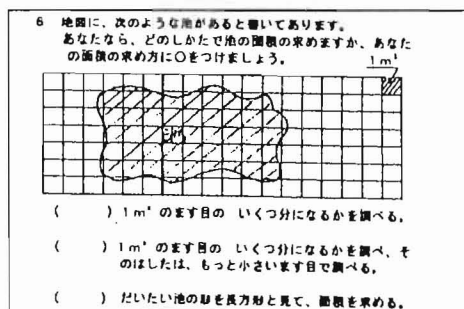 6 地図に、次のような池があると書いてあります。
あなたなら、どのしかたで池の面積の求めますか、あなた
の面積の求め方に○をつけましょう。
1m²
( ) 1m²のます目の いくつ分になるかを調べる。
( ) 1m²のます目の いくつ分になるかを調べ、そ
のはしたは、もっと小さいます目で調べる。
( ) だいたい池の形を長方形と見て、面積を求める。